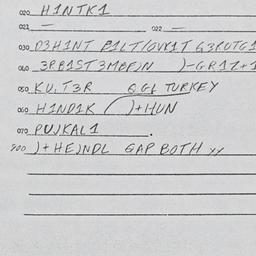 020 H1NTK1
021 — 022 —
030 D3H1NT B1LT/OVK1T G3ROTG1
040 3RB1ST3MBF)N )-GR1Z+1
050 KU,T3R GGL TURKEY
060 H1ND1K )+HUN
070 PU)KAL1.
900 )+HE)NDL GAP BOTH